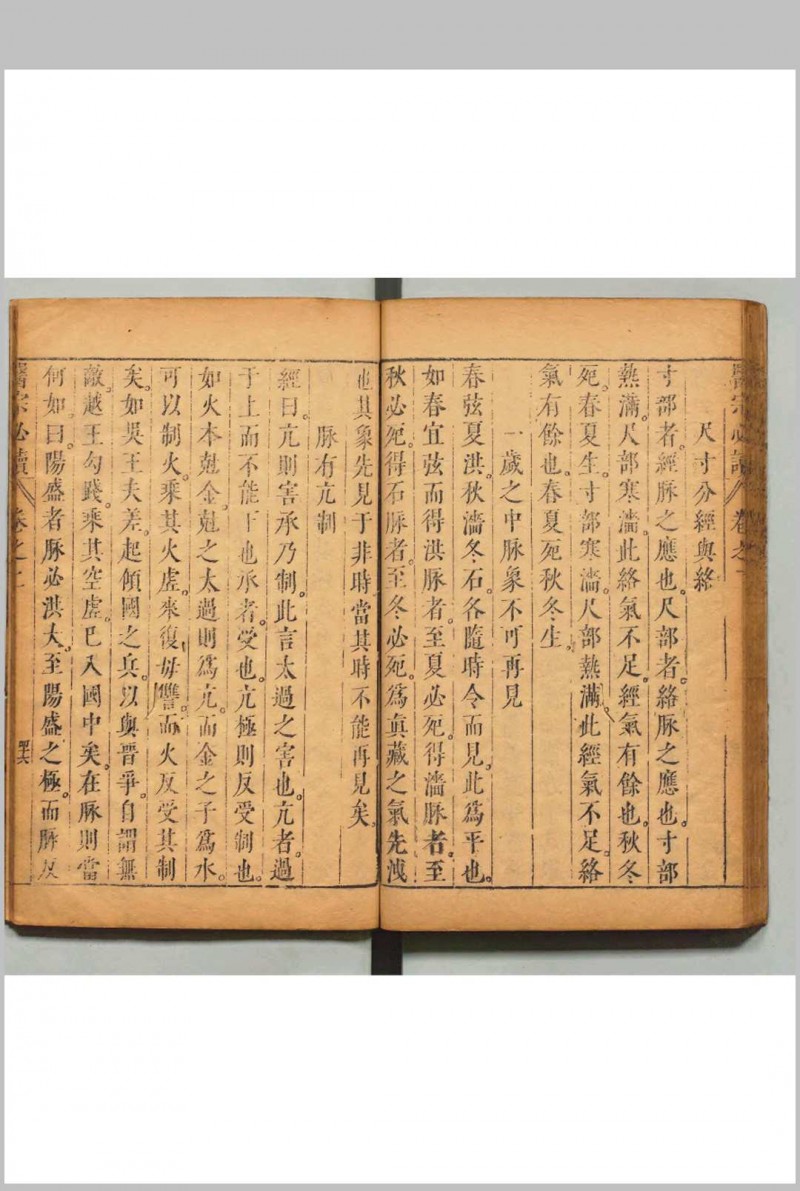 醫宗必讀 卷之二
尺寸分經與絡
寸部者。經脉之應也。尺部者。絡脉之應也。寸部
熱滿。尺部寒濇。此絡氣不足。經氣有餘也。秋冬
死。春夏生。寸部寒濇。尺部熱滿。此經氣不足。絡
氣有餘也。春夏死。秋冬生。
一歲之中脉象不可再見
春弦夏洪。秋濇冬石。各隨時令而見。此爲平也。
如春宜弦而得洪脉者。至夏必死。得濇脉者。至
秋必死。得石脉者。至冬必死。爲眞藏之氣先洩
也。其象先見于非時。當其時不能再見矣。
脉有亢制
經曰。亢則害。承乃制。此言太過之害也。亢者。過
于上而不能下也。承者。受也。亢極則反受制也。
如火本尅金。尅之太過則爲亢。而金之子爲水。
可以制火。乘其火虛。來復母讐。而火反受其制
矣。如吳王夫差。起傾國之兵。以與晋爭。自謂無
敵。越王勾踐。乘其空虛。已入國中矣。在脉則當
何如。曰。陽盛者脉必洪大。至陽盛之極。而脉反
醫宗必讀 卷之二